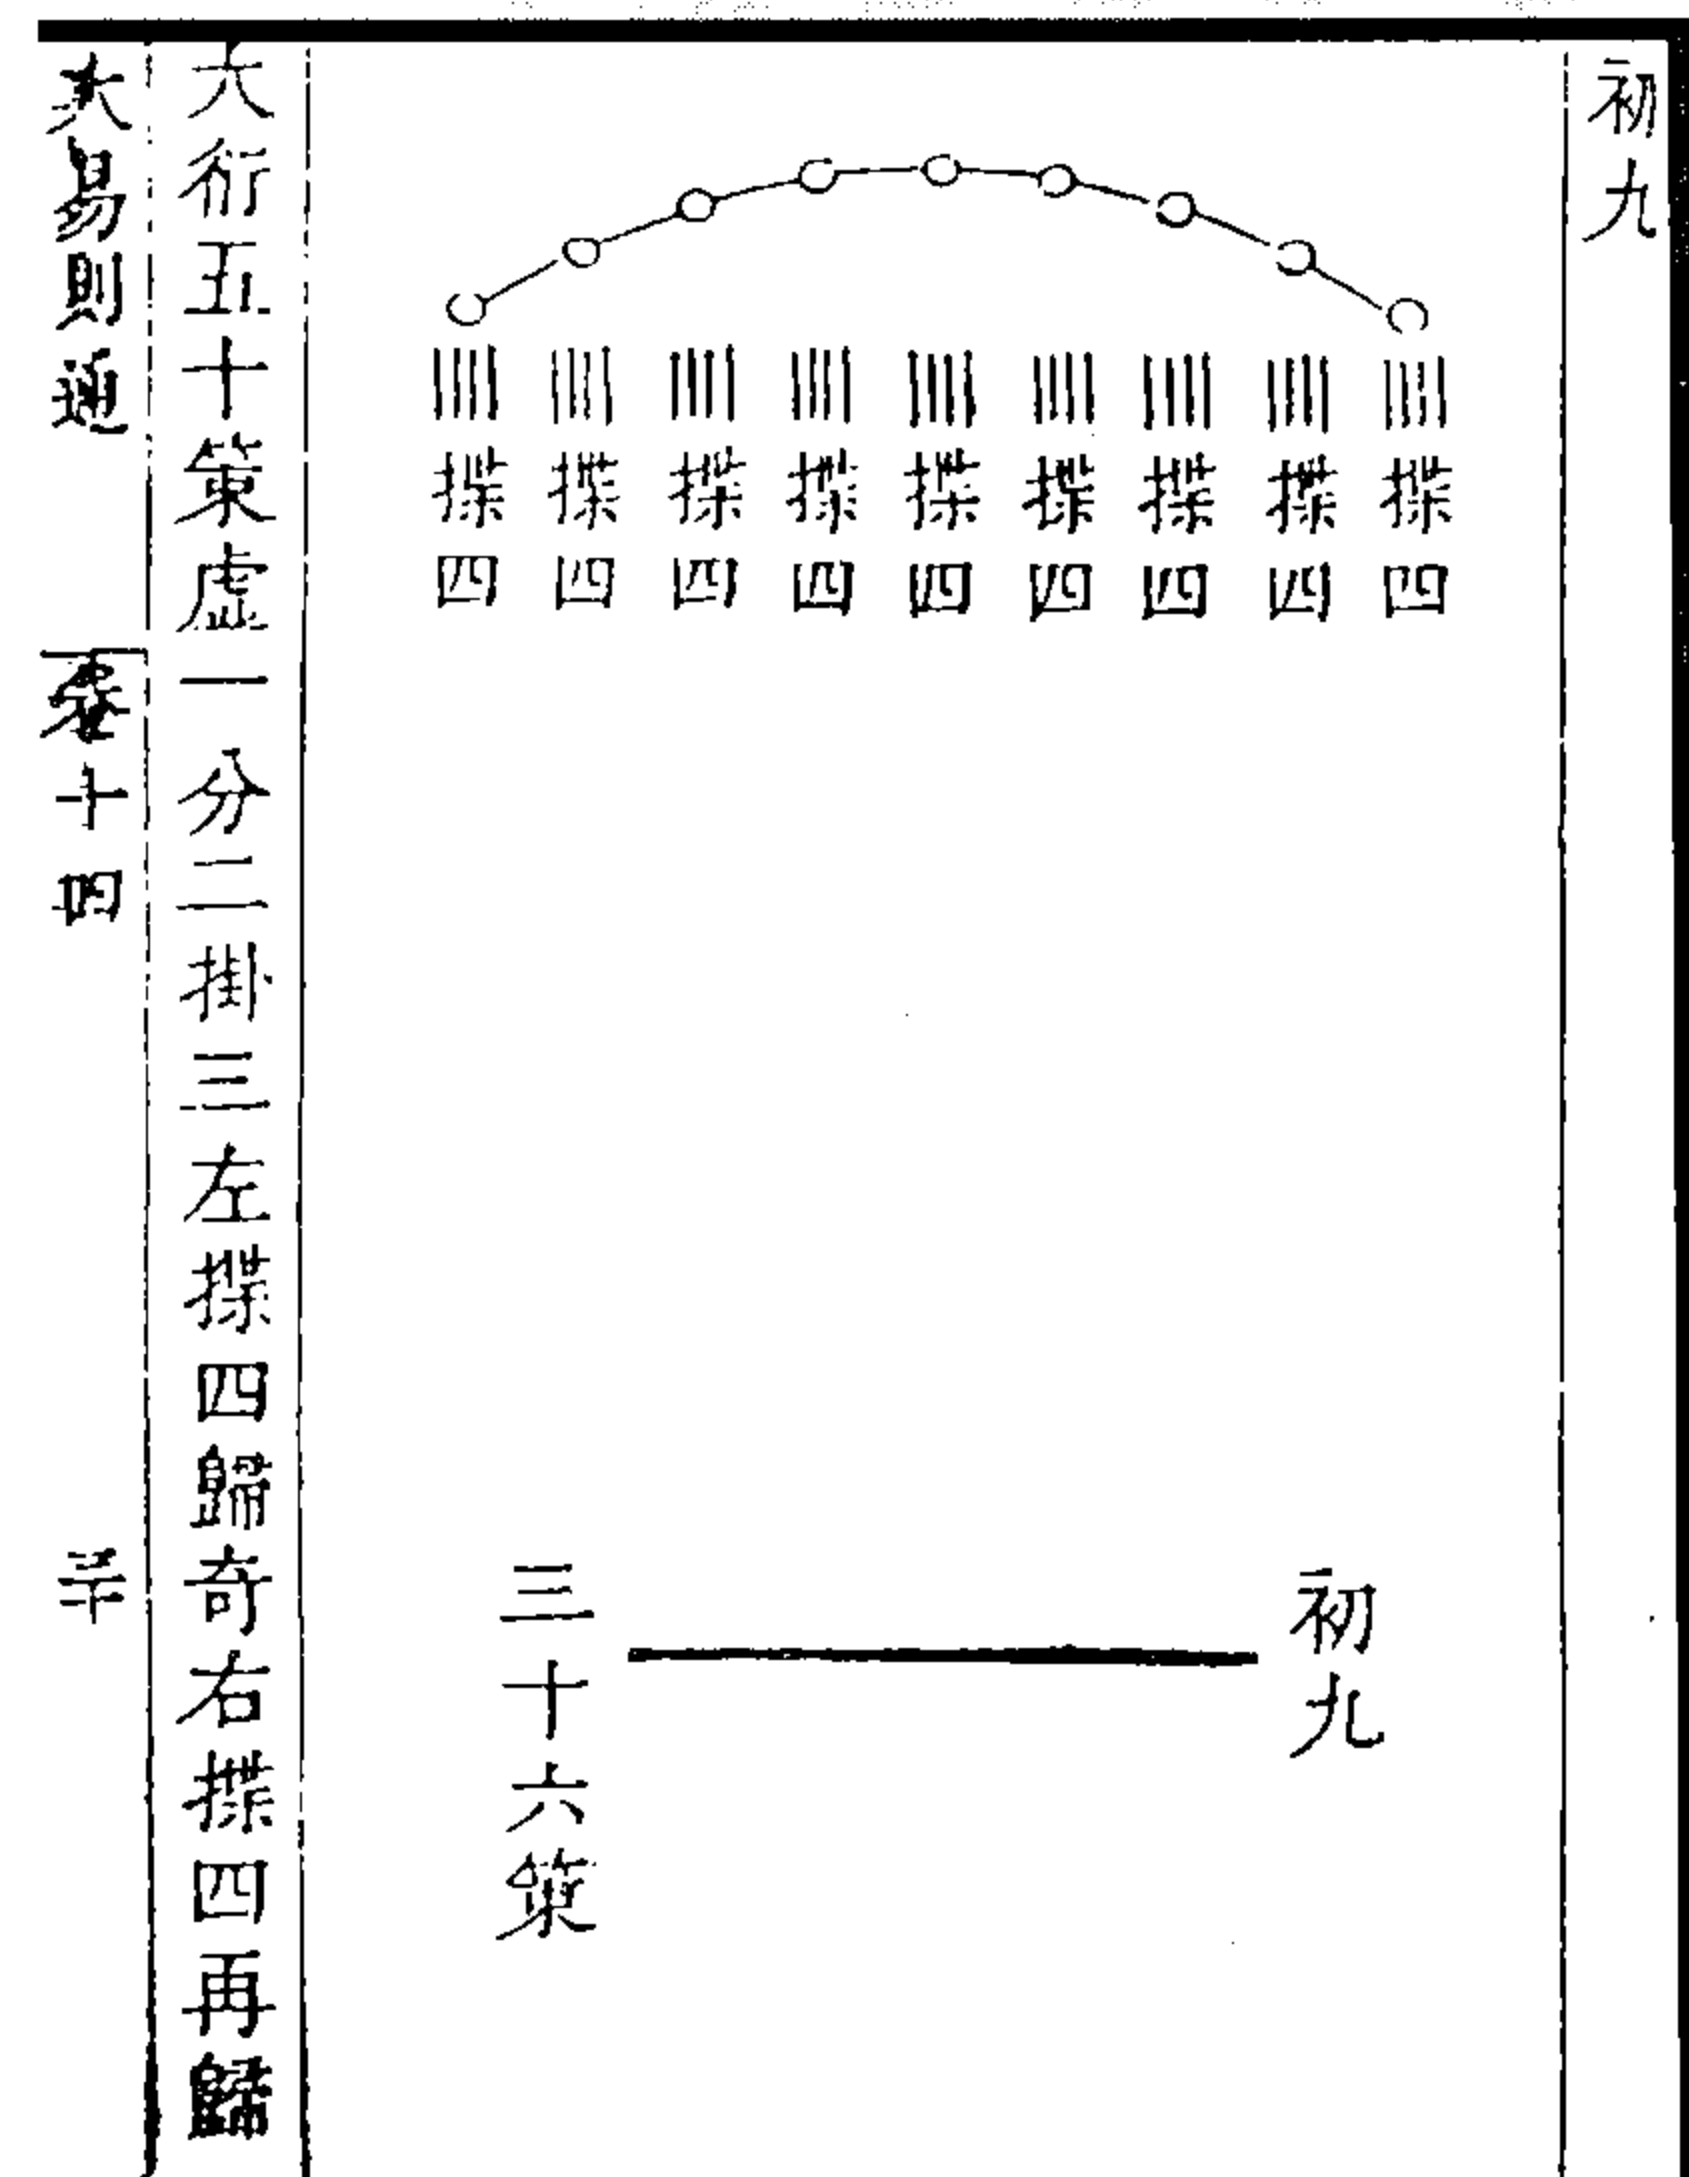 初九
揲四
揲四
揲四
揲四
揲四
揲四
揲四
揲四
揲四
初九
三十六策
大衍五十策虛一分二掛三左揲四歸奇右揲四再歸
大易則通
卷十四
三十